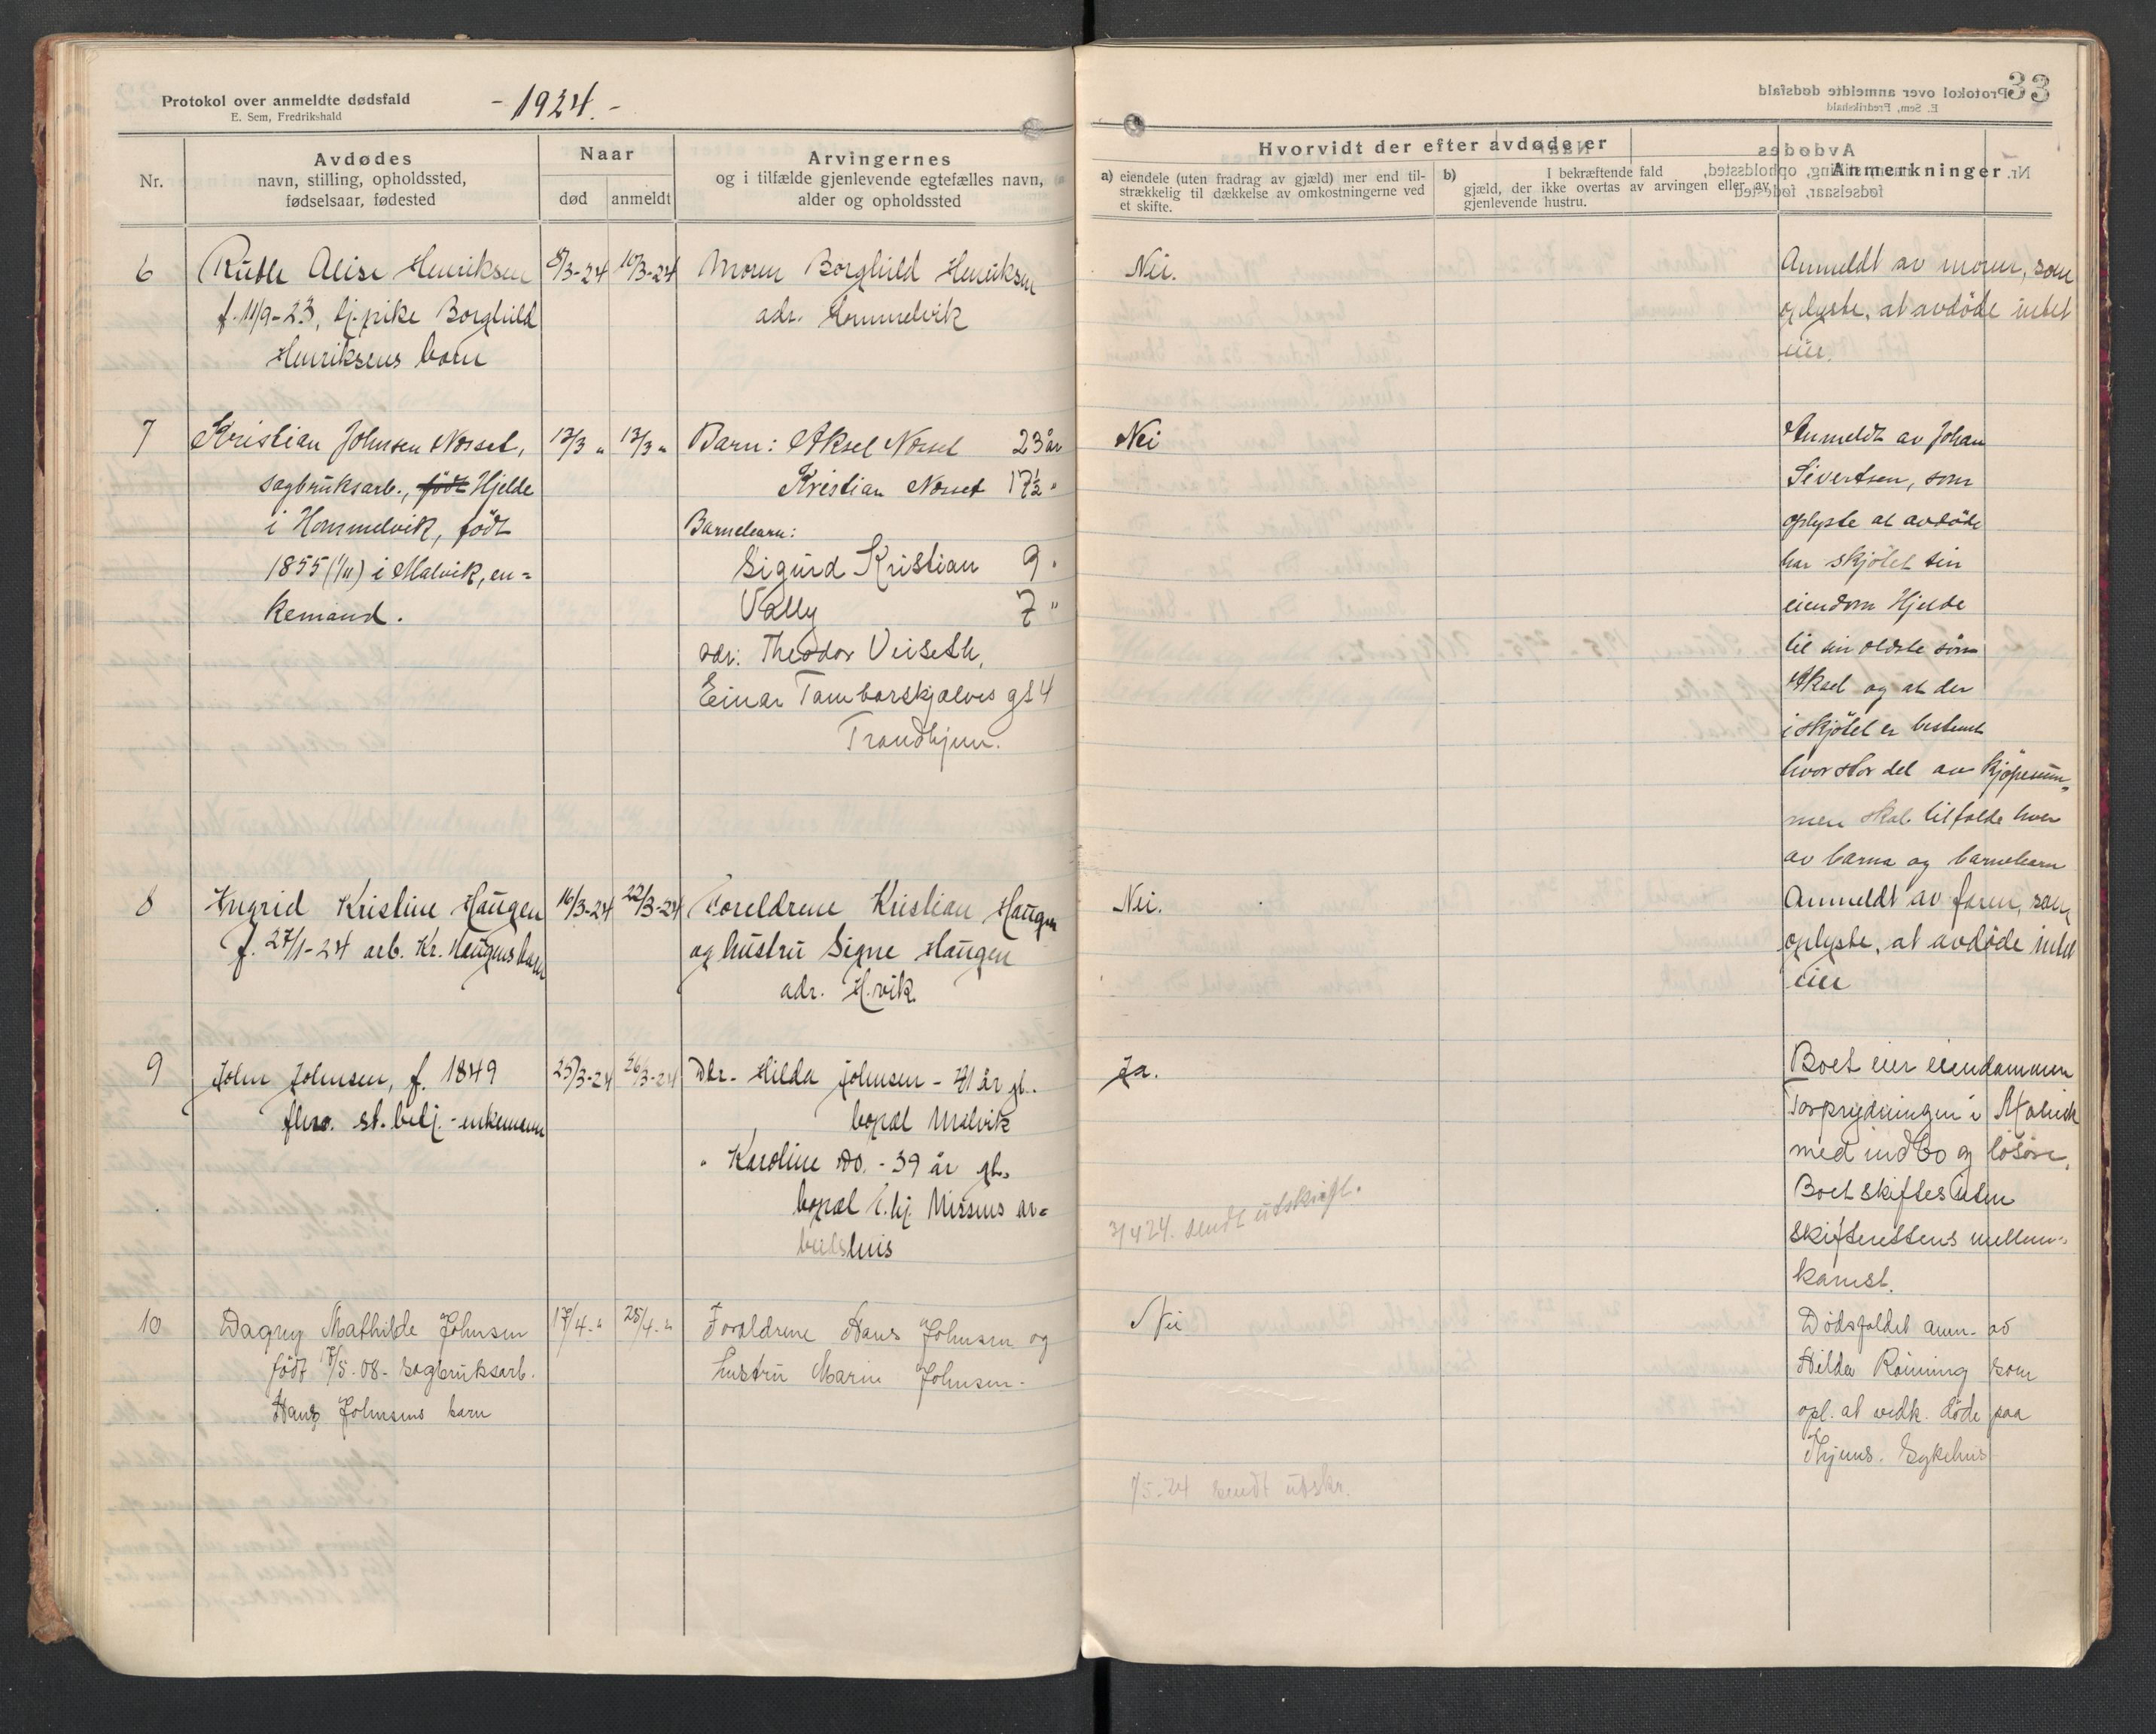 Protokol over anmeldte dødsfald
E. Sem, Fredrikshald
- 1924. -
33
Nr.
Avdødes
navn, stilling, opholdssted,
fødselsaar, fødested
Naar
død
anmeldt
Arvingernes
og i tilfælde gjenlevende egtefælles navn,
alder og opholdssted
Hvorvidt der efter avdøde er
a) eiendele (uten fradrag av gjæld) mer end til-
strækkelig til dækkelse av omkostningerne ved
et skifte.
b) I bekræftende fald
gjæld, der ikke overtas av arvingen eller av
gjenlevende hustru.
Anmerkninger
6
Ruth Alise Henriksen
f. 11/9-23, tj.pike Borghild
Henriksens barn
8/3-24
10/3-24
Moren Borghild Henriksen
adr. Hommelvik
Nei.
Anmeldt av moren, som
oplyste, at avdøde intet
eier.
7
Kristian Johnsen Nosset,
sagbruksarb., født Hjelde
i Hommelvik, født
1855 (1/11) i Malvik, en-
kemand.
12/3 "
13/3 "
Barn: Aksel Nosset 23 år
Kristian Nosset 17½ "
Barnebarn:
Sigurd Kristian 9 "
Vally 7 "
adr. Theodor Veiseth,
Einar Tambarskjælves gt 4
Trondhjem.
Nei
Anmeldt av Johan
Sivertsen, som
oplyste at avdøde
har skjøtet sin
eiendom Hjelde
til sin eldste søn
Aksel og at der
i skjøtet er bestemt
hvor stor del av kjøpesum-
men skal tilfalde hver
av barna og barnebarn
8
Ingrid Kristine Haugen
f. 27/1-24 arb. Kr. Haugens barn
16/3-24
22/3-24
Foreldrene Kristian Haugen
og hustru Signe Haugen
adr. H.vik
Nei.
Anmeldt av faren, som
oplyste, at avdøde intet
eier
9
John Johnsen, f. 1849
fhv. st.betj. - enkemann
25/3-24
26/3-24
Dtr. Hilda Johnsen - 41 år gl.
bopæl Malvik
" Karoline do. - 39 år gl.
bopæl t.hj. Missens ar-
beidshuis
Ja.
3/4 24. sendt utskrift.
Boet eier eiendommen
Torprydningen i Malvik
med indbo og løsøre.
Boet skiftes uten
skifterettens mellem-
komst.
10
Dagny Mathilde Johnsen
født 7/5-08 - sagbruksarb.
Hans Johnsens barn
17/4 - "
25/4 - "
Foreldrene Hans Johnsen og
hustru Marie Johnsen -
Nei
/5-24 sendt utskr.
Dødsfaldet anm. av
Hilda Rønning som
opl. at vedk. døde paa
Thjems. Sykehus